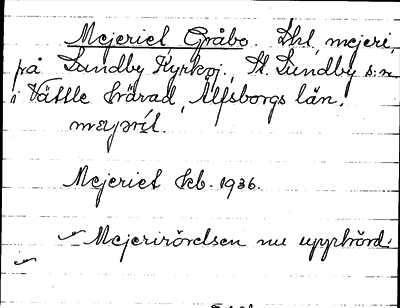 Mejeriet, Gråbo. Lht, mejeri,
på Lundby Kyrkoj., St. Lundby s:n
i Vättle härad, Älfsborgs län.
Mejeriet Kb. 1936.
Mejerirörelsen nu upphörd.